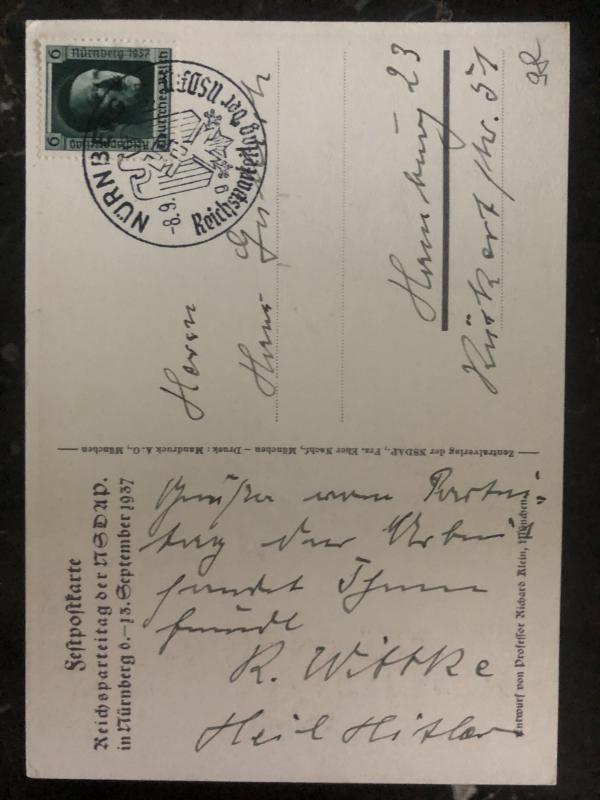 Festpostkarte
Reichsparteitag der NSDAP.
in Nürnberg 6.–13. September 1937
Grüße vom Partei
tag der Arbeit"
sendet Ihnen
freundl
R. Wittke
Heil Hitler
Entwurf von Professor Richard Klein, München
Zentralverlag der NSDAP., Frz. Eher Nachf., München – Druck: Mandruck A.G., München
Nürnberg 1937
6
6
Deutsches Reich
Reichsparteitag
NÜRNBERG
-8.9.
9
Reichsparteitag der NSDAP
Herrn
Hans
Hamburg 23
Rückertstr. 51
98